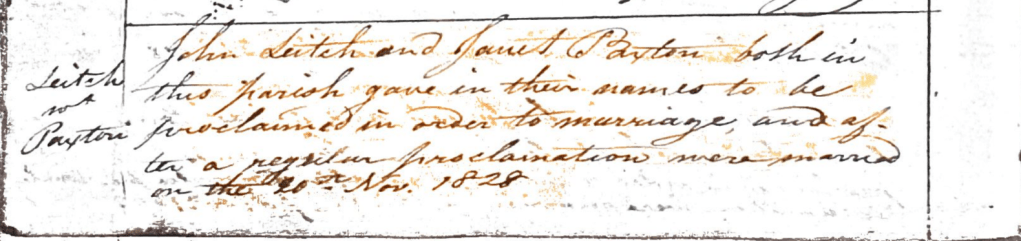 Leitch
wt
Paxton
John Leitch and Janet Paxton both in
this parish gave in their names to be
proclaimed in order to marriage, and af-
ter a regular proclamation were married
on the 20th Nov. 1828